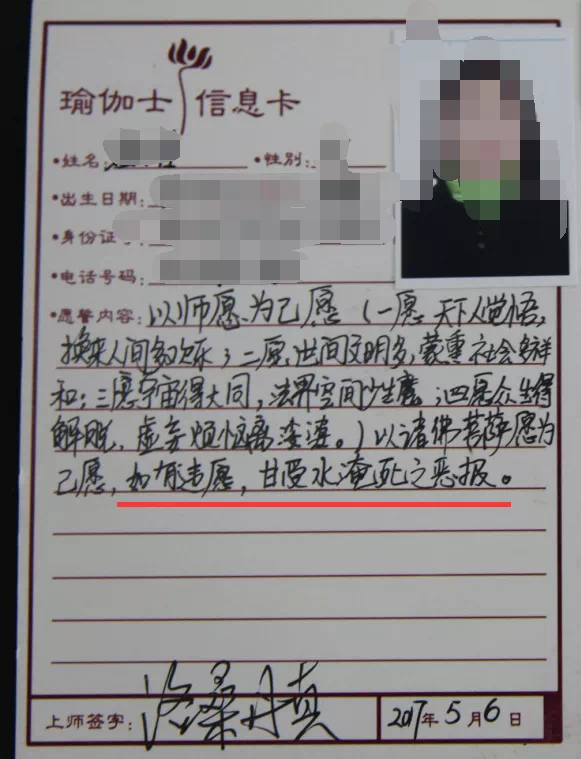 瑜伽士 信息卡
•姓名:
•性别:
•出生日期:
•身份证
•电话号码:
•愿誓内容: 以师愿为己愿(一愿天下人觉悟,
换来人间多欢乐;二愿世间文明多,蒙熏社会多祥
和;三愿宇宙得大同,法界空间少生魔;四愿众生得
解脱,虚妄烦恼离娑婆。)以诸佛菩萨愿为
己愿,如有违愿,甘受水淹死之恶报。
上师签字: 洛桑丹真
2017年5月6日